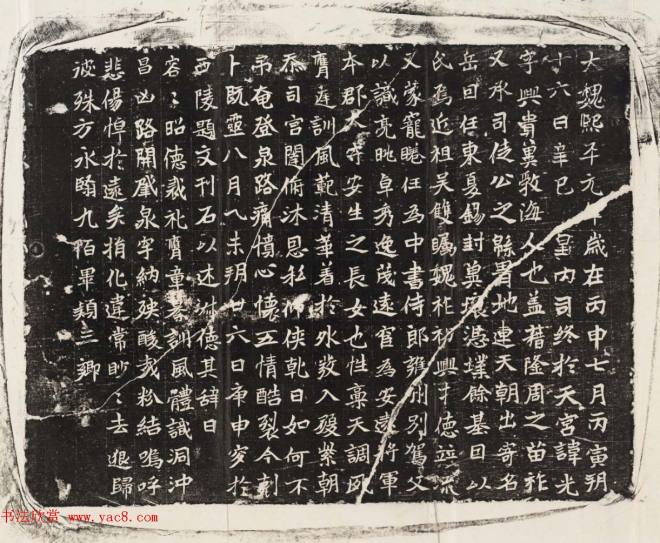 大魏熙平元歲在丙申七月丙寅朔
十六日辛巳皇內司終於天宮諱光
字興貴冀敦海人也蓋藉隆周之苗祚
又承司徒公之緜胄地連天朝出寄名
岳曰任東夏錫封冀壤憑墣餘基因以
氏焉近祖吴雙矚魏祚初興才德並流
又蒙寵睠任為中書侍郎雍州別駕父
以識亮眺卓秀逸茂遠宦為安遠將軍
本郡太守安生之長女也性稟天調風
膺莛訓風範清華着於外發入發紫朝
忝司宮闈俯沐恩私仰俠乾日如何不
吊奄登泉路痛憤心懷五情酷裂今剋
卜既靈八月乙未朔廿六日庚申窆於
西陵題文刊石以述德其辭曰
容々昭德裁礼膺章訓風體識洞沖
昌凶路開戲泉宇納殃酸彧粉結嗚呼
悲傷悼於遠矣指化違常眇々去退歸
彼殊方永翳九陌畢類三鄉
书法欣赏 www.yac8.com